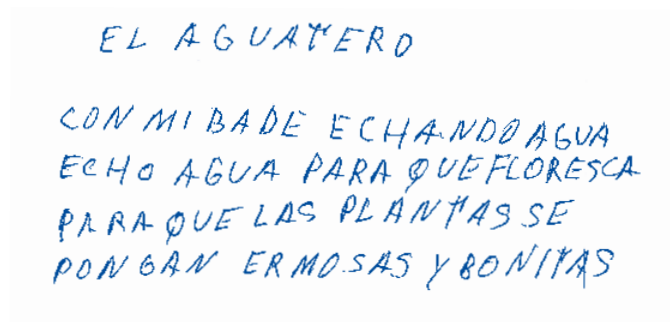 EL AGUATERO
CON MI BADE ECHANDO AGUA
ECHO AGUA PARA QUE FLORESCA
PARA QUE LAS PLANTAS SE
PONGAN ERMOSAS Y BONITAS